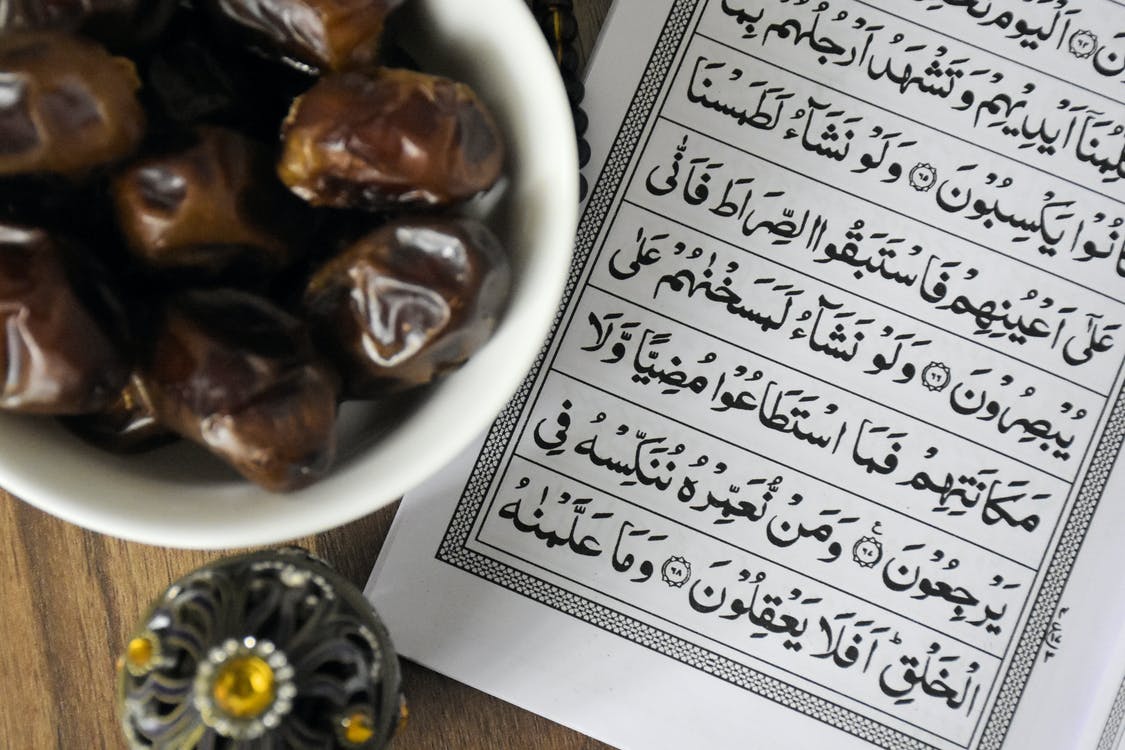 اَلْيَوْمَ
اَيْدِيْهِمْ وَ تَشْهَدُ اَرْجُلُهُمْ بِمَا
كَانُوْا يَكْسِبُوْنَ ۝٦٥ وَ لَوْ نَشَآءُ لَطَمَسْنَا
عَلٰۤى اَعْيُنِهِمْ فَاسْتَبَقُوا الصِّرَاطَ فَاَنّٰى
يُبْصِرُوْنَ ۝٦٦ وَ لَوْ نَشَآءُ لَمَسَخْنٰهُمْ عَلٰى
مَكَانَتِهِمْ فَمَا اسْتَطَاعُوْا مُضِيًّا وَّ لَا
يَرْجِعُوْنَ ۝٦٧ وَ مَنْ نُّعَمِّرْهُ نُنَكِّسْهُ فِي
الْخَلْقِ اَفَلَا يَعْقِلُوْنَ ۝٦٨ وَ مَا عَلَّمْنٰهُ